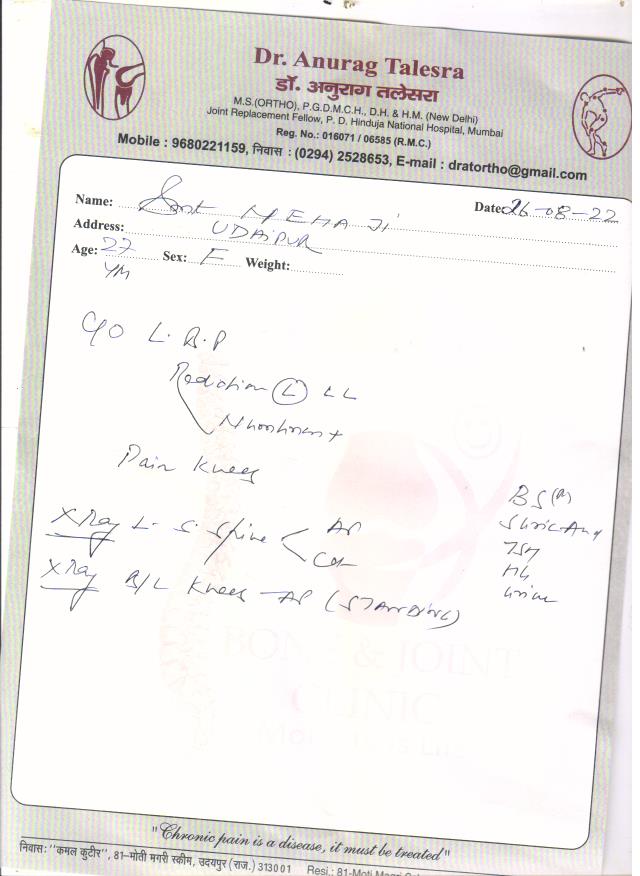 Dr. Anurag Talesra
डॉ. अनुराग तलेसरा
M.S.(ORTHO), P.G.D.M.C.H., D.H. & H.M. (New Delhi)
Joint Replacement Fellow, P. D. Hinduja National Hospital, Mumbai
Reg. No.: 016071 / 06585 (R.M.C.)
Mobile : 9680221159, निवास : (0294) 2528653, E-mail : dratortho@gmail.com
Name: Smt NEHA Ji Date: 26-08-22
Address: UDAIPUR
Age: 27 Sex: F Weight:
C/O L.B.P
Radiation L LL
Numbness +
Pain Knees
BS(R)
S Uric Acid
TSH
Hb
Urine
X Ray L.S. Spine AP
Lat
X Ray B/L Knees AP (STANDING)
BONE & JOINT
CLINIC
"Chronic pain is a disease, it must be treated"
निवास: "कमल कुटीर", 81-मोती मगरी स्कीम, उदयपुर (राज.) 313001 Resi.: 81-Moti Magri